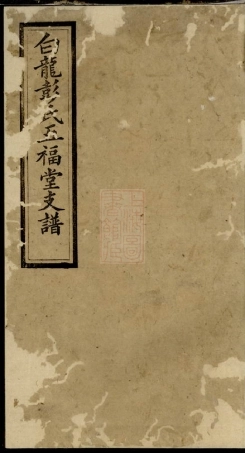 白龍彭氏五福堂支譜